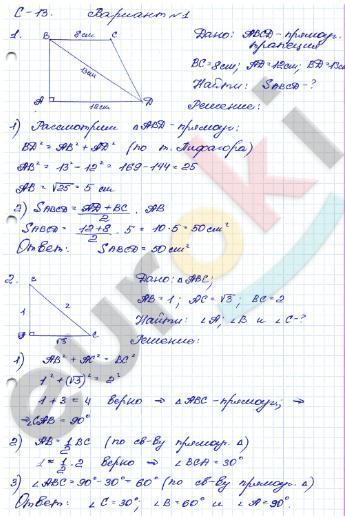 С-13. Вариант №1
1.
B 8 см C
13 см
A 12 см D
Дано: ABCD - прямоуг.
трапеция
BC = 8 см; AD = 12 см; BD = 13 см
Найти: S ABCD - ?
Решение:
1) Рассмотрим △ABD - прямоуг.:
BD² = AB² + AD² (по т. Пифагора)
AB² = 13² - 12² = 169 - 144 = 25
AB = √25 = 5 см
2) S ABCD = (AD + BC)/2 · AB
S ABCD = (12+8)/2 · 5 = 10 · 5 = 50 см²
Ответ: S ABCD = 50 см²
2.
B
1 2
A √3 C
Дано: △ABC;
AB = 1; AC = √3; BC = 2
Найти: ∠A; ∠B и ∠C - ?
Решение:
1) AB² + AC² = BC²
1² + (√3)² = 2²
1 + 3 = 4 верно ⇒ △ABC - прямоуг.; ⇒
⇒ ∠CAB = 90°
2) AB = 1/2 BC (по св-ву прямоуг. △)
1 = 1/2 · 2 верно ⇒ ∠BCA = 30°
3) ∠ABC = 90° - 30° = 60° (по св-ву прямоуг. △)
Ответ: ∠C = 30°, ∠B = 60° и ∠A = 90°.
euroki